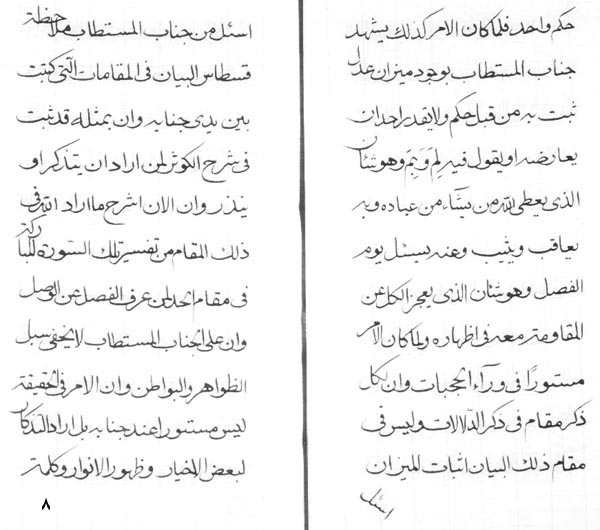 حكم واحد فلما كان الامر كذلك يشهد
جناب المستطاب بوجود ميزان عدل
ثبت به من قبل حكم ولا يقدر احد ان
يعارضه او يقول فيه لم وبم وهو شئان
الذى يعطى الله من يشآء من عباده وبه
يعاقب ويثيب وعنه يسئل يوم
الفصل وهو شئان الذى يعجز الكل عن
المقاومة معه فى اظهاره ولما كان الامر
مستورًا فى ورآء الحجبات وان لكل
ذكر مقام فى ذكر الدلالات وليس فى
مقام ذلك البيان اثبات الميزان
اسئل
اسئل من جناب المستطاب ملاحظة
قسطاس البيان فى المقامات التى كتبت
بين يدى جنابه وان بمثله قد ثبت
فى شرح الكوثر لمن اراد ان يتذكر او
ينذر وان الان اشرح ما اراد الله فى
ذلك المقام من تفسير تلك السورة المباركة
فى مقام الحد لمن عرف الفصل عن الوصل
وان على الجناب المستطاب لا يخفى سبل
الظواهر والبواطن وان الامر فى الحقيقة
ليس مستورا عند جنابه بل اراد التذكار
لبعض الاخيار وظهور الانوار وكلمة
٨